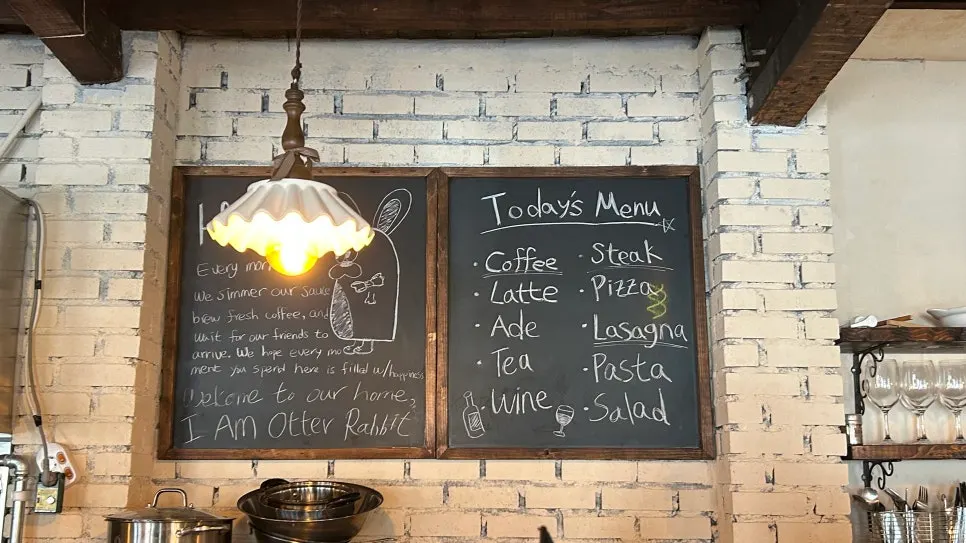 Every
We simmer our sauce
brew fresh coffee, and
wait for our friends to
arrive. We hope every mo
ment you spend here is filled w/happiness
to our home,
I Am Otter Rabbit
Today's Menu
· Coffee
· Latte
· Ade
· Tea
· Wine
· Steak
· Pizza
· Lasagna
· Pasta
· Salad